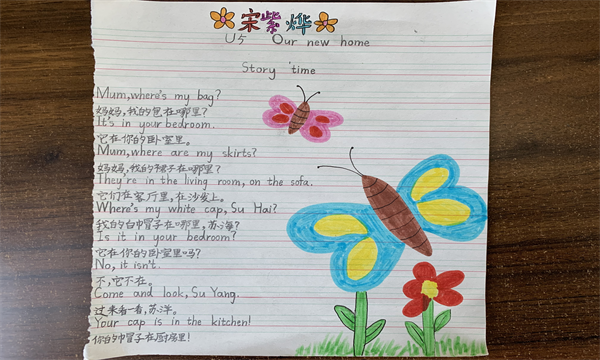 宋紫烨
U5 Our new home
Story time
Mum, where's my bag?
妈妈,我的包在哪里?
It's in your bedroom.
它在你的卧室里。
Mum, where are my skirts?
妈妈,我的裙子在哪里?
They're in the living room, on the sofa.
它们在客厅里,在沙发上。
Where's my white cap, Su Hai?
我的白帽子在哪里,苏海?
Is it in your bedroom?
它在你的卧室里吗?
No, it isn't.
不,它不在。
Come and look, Su Yang.
过来看一看,苏洋。
Your cap is in the kitchen!
你的帽子在厨房里!